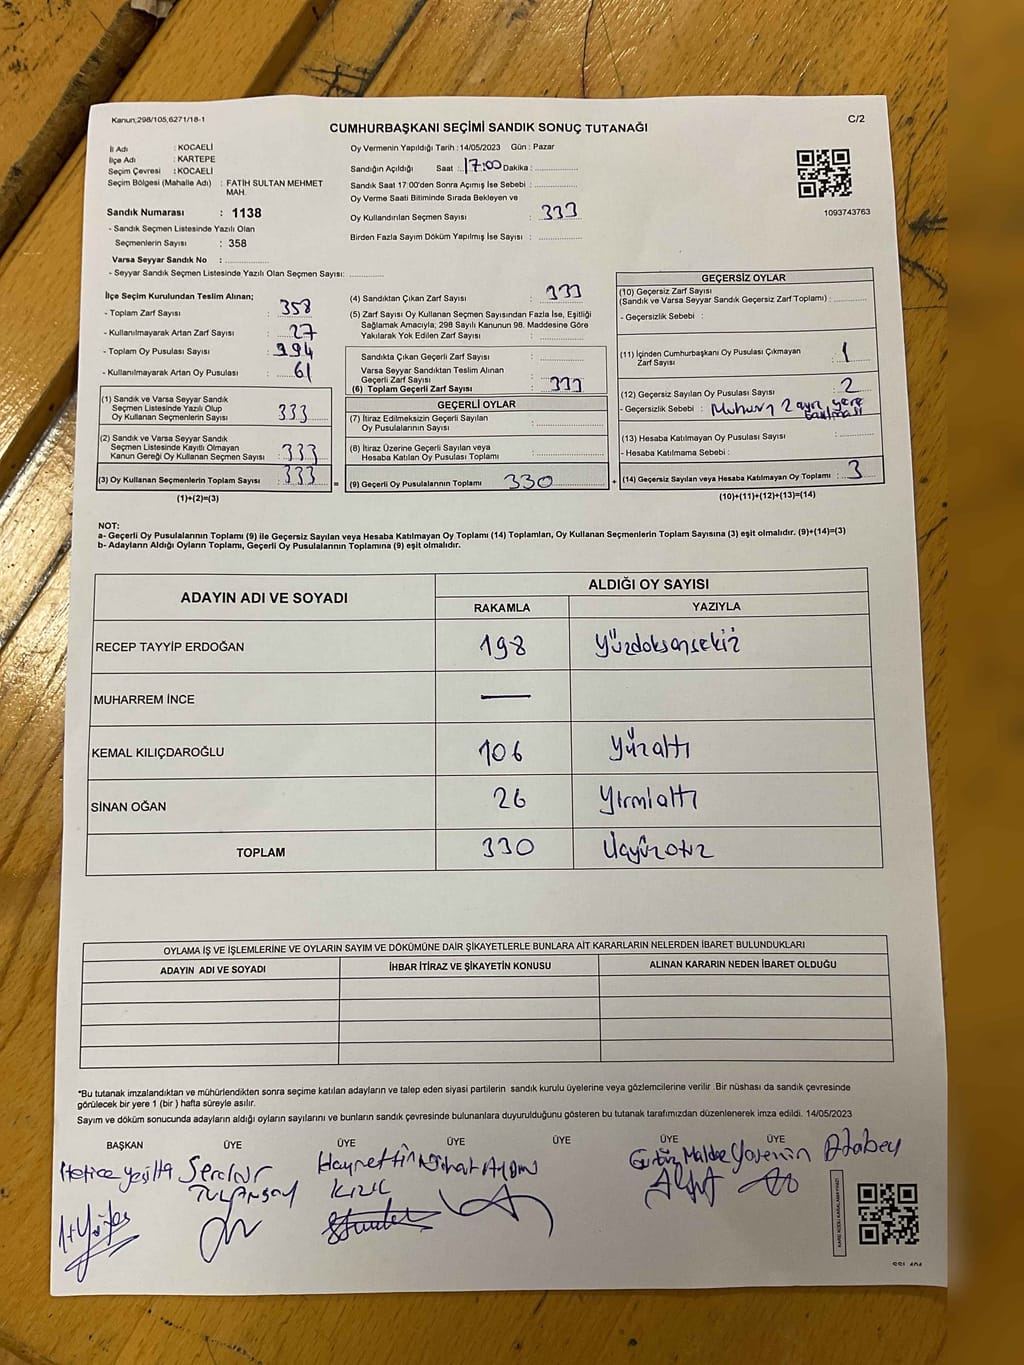 Kanun;298/105;6271/18-1
C/2
CUMHURBAŞKANI SEÇİMİ SANDIK SONUÇ TUTANAĞI
İl Adı : KOCAELİ
İlçe Adı : KARTEPE
Seçim Çevresi : KOCAELİ
Seçim Bölgesi (Mahalle Adı) : FATİH SULTAN MEHMET
MAH.
Sandık Numarası : 1138
- Sandık Seçmen Listesinde Yazılı Olan
Seçmenlerin Sayısı : 358
Varsa Seyyar Sandık No :
- Seyyar Sandık Seçmen Listesinde Yazılı Olan Seçmen Sayısı:
Oy Vermenin Yapıldığı Tarih : 14/05/2023 Gün : Pazar
Sandığın Açıldığı Saat : 17:00 Dakika :
Sandık Saat 17:00'den Sonra Açımış İse Sebebi :
Oy Verme Saati Bitiminde Sırada Bekleyen ve
Oy Kullandırılan Seçmen Sayısı : 333
Birden Fazla Sayım Döküm Yapılmış İse Sayısı :
1093743763
İlçe Seçim Kurulundan Teslim Alınan;
- Toplam Zarf Sayısı : 358
- Kullanılmayarak Artan Zarf Sayısı : 27
- Toplam Oy Pusulası Sayısı : 394
- Kullanılmayarak Artan Oy Pusulası : 61
(1) Sandık ve Varsa Seyyar Sandık
Seçmen Listesinde Yazılı Olup
Oy Kullanan Seçmenlerin Sayısı : 333
(2) Sandık ve Varsa Seyyar Sandık
Seçmen Listesinde Kayıtlı Olmayan
Kanun Gereği Oy Kullanan Seçmen Sayısı : 333
(3) Oy Kullanan Seçmenlerin Toplam Sayısı : 333
(1)+(2)=(3)
(4) Sandıktan Çıkan Zarf Sayısı : 333
(5) Zarf Sayısı Oy Kullanan Seçmen Sayısından Fazla İse, Eşitliği
Sağlamak Amacıyla; 298 Sayılı Kanunun 98. Maddesine Göre
Yakılarak Yok Edilen Zarf Sayısı :
Sandıkta Çıkan Geçerli Zarf Sayısı :
Varsa Seyyar Sandıktan Teslim Alınan
Geçerli Zarf Sayısı :
(6) Toplam Geçerli Zarf Sayısı : 333
GEÇERLİ OYLAR
(7) İtiraz Edilmeksizin Geçerli Sayılan
Oy Pusulalarının Sayısı :
(8) İtiraz Üzerine Geçerli Sayılan veya
Hesaba Katılan Oy Pusulası Toplamı :
= (9) Geçerli Oy Pusulalarının Toplamı : 330
GEÇERSİZ OYLAR
(10) Geçersiz Zarf Sayısı
(Sandık ve Varsa Seyyar Sandık Geçersiz Zarf Toplamı) :
- Geçersizlik Sebebi :
(11) İçinden Cumhurbaşkanı Oy Pusulası Çıkmayan
Zarf Sayısı : 1
(12) Geçersiz Sayılan Oy Pusulası Sayısı : 2
- Geçersizlik Sebebi : Mührün 2 ayrı yere
basılması
(13) Hesaba Katılmayan Oy Pusulası Sayısı :
- Hesaba Katılmama Sebebi :
+ (14) Geçersiz Sayılan veya Hesaba Katılmayan Oy Toplamı : 3
(10)+(11)+(12)+(13)=(14)
NOT:
a- Geçerli Oy Pusulalarının Toplamı (9) ile Geçersiz Sayılan veya Hesaba Katılmayan Oy Toplamı (14) Toplamları, Oy Kullanan Seçmenlerin Toplam Sayısına (3) eşit olmalıdır. (9)+(14)=(3)
b- Adayların Aldığı Oyların Toplamı, Geçerli Oy Pusulalarının Toplamına (9) eşit olmalıdır.
ADAYIN ADI VE SOYADI ALDIĞI OY SAYISI
RAKAMLA YAZIYLA
RECEP TAYYİP ERDOĞAN 198 Yüzdoksansekiz
MUHARREM İNCE —
KEMAL KILIÇDAROĞLU 106 Yüzaltı
SİNAN OĞAN 26 Yirmialtı
TOPLAM 330 Üçyüzotuz
OYLAMA İŞ VE İŞLEMLERİNE VE OYLARIN SAYIM VE DÖKÜMÜNE DAİR ŞİKAYETLERLE BUNLARA AİT KARARLARIN NELERDEN İBARET BULUNDUKLARI
ADAYIN ADI VE SOYADI İHBAR İTİRAZ VE ŞİKAYETİN KONUSU ALINAN KARARIN NEDEN İBARET OLDUĞU
*Bu tutanak imzalandıktan ve mühürlendikten sonra seçime katılan adayların ve talep eden siyasi partilerin sandık kurulu üyelerine veya gözlemcilerine verilir .Bir nüshası da sandık çevresinde
görülecek bir yere 1 (bir ) hafta süreyle asılır.
Sayım ve döküm sonucunda adayların aldığı oyların sayılarını ve bunların sandık çevresinde bulunanlara duyurulduğunu gösteren bu tutanak tarafımızdan düzenlenerek imza edildi. 14/05/2023
BAŞKAN ÜYE ÜYE ÜYE ÜYE ÜYE ÜYE
Hatice Serdar Hayrettin Nihat Yasemin Atabey
KIZIL